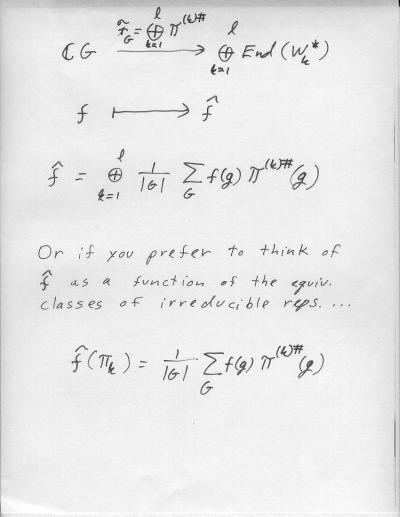 ℂG \xrightarrow{\tilde{\mathcal{F}}_G = \bigoplus_{k=1}^{l} \pi^{(k)\#}} \bigoplus_{k=1}^{l} End(W_k^*)
f ⟼ \hat{f}
\hat{f} = \bigoplus_{k=1}^{l} \frac{1}{|G|} \sum_{G} f(g) \pi^{(k)\#}(g)
Or if you prefer to think of
\hat{f} as a function of the equiv.
classes of irreducible reps. ...
\hat{f}(\pi_k) = \frac{1}{|G|} \sum_{G} f(g) \pi^{(k)\#}(g)